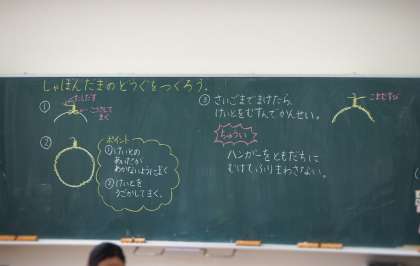 しゃぼんだまのどうぐをつくろう。
①
②
ポイント
①けいとの
あいだが
あかないようにまく
②けいとを
うごかしてまく。
③さいごまでまけたら、
けいとをむすんでかんせい。
ちゅうい
ハンガーをともだちに
むけもふりまわさない。
こまむすび